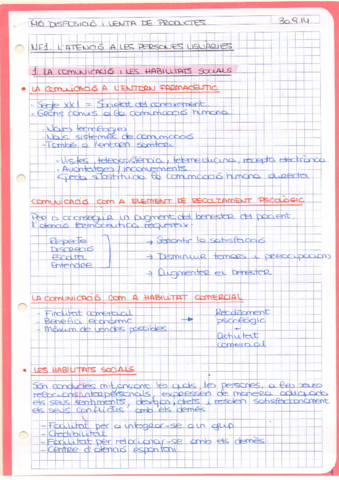 M0 DISPOSICIÓ I VENTA DE PRODUCTES
30.9.14
NF1. L'ATENCIÓ A LES PERSONES USUARIES
1 LA COMUNICACIÓ I LES HABILITATS SOCIALS
• LA COMUNICACIÓ A L'ENTORN FARMACEUTIC
- Segle XXI = Societat del coneixement
- Grans canvis a la comunicació humana
- Noves tecnologies
- Nous sistemes de comunicació
- També a l'entorn sanitari
- Visites, teleassistència, telemedicina, recepta electrònica
- Avantatges / inconvenients
- substitució de comunicació humana directa
COMUNICACIÓ COM A ELEMENT DE RECOLZAMENT PSICOLÒGIC
Per a aconseguir un augment del benestar del pacient,
l'atenció farmacèutica requereix:
Respecte
Discreció
Escolta
Entendre
→ Garantir la satisfacció
→ Disminuir temors i preocupacions
→ Augmentar el benestar
LA COMUNICACIÓ COM A HABILITAT COMERCIAL
- Finalitat comercial
- Benefici econòmic
- Màxim de vendes possibles
→
Recolzament
psicològic
+
Activitat
comercial
• LES HABILITATS SOCIALS
Són conductes mitjançant les quals, les persones, a les seues
relacions interpersonals, expressen de manera adequada
els seus sentiments, desitjos, drets i resolen satisfactoriament
els seus conflictes amb els demés
- Facilitat per a integrar-se a un grup
- Credibilitat
- Facilitat per relacionar-se amb els demés
- Centre d'atenció espontani
1